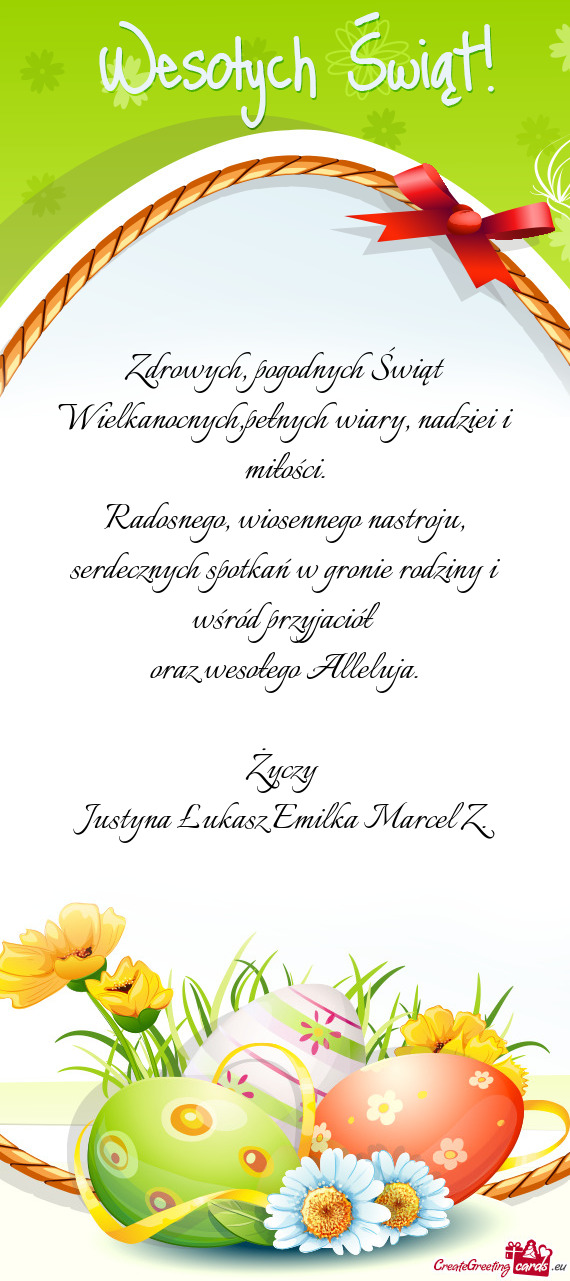 Wesołych Świąt!
Zdrowych, pogodnych Świąt
Wielkanocnych,pełnych wiary, nadziei i
miłości.
Radosnego, wiosennego nastroju,
serdecznych spotkań w gronie rodziny i
wśród przyjaciół
oraz wesołego Alleluja.
Życzy
Justyna Łukasz Emilka Marcel Z.
CreateGreetingcards.eu